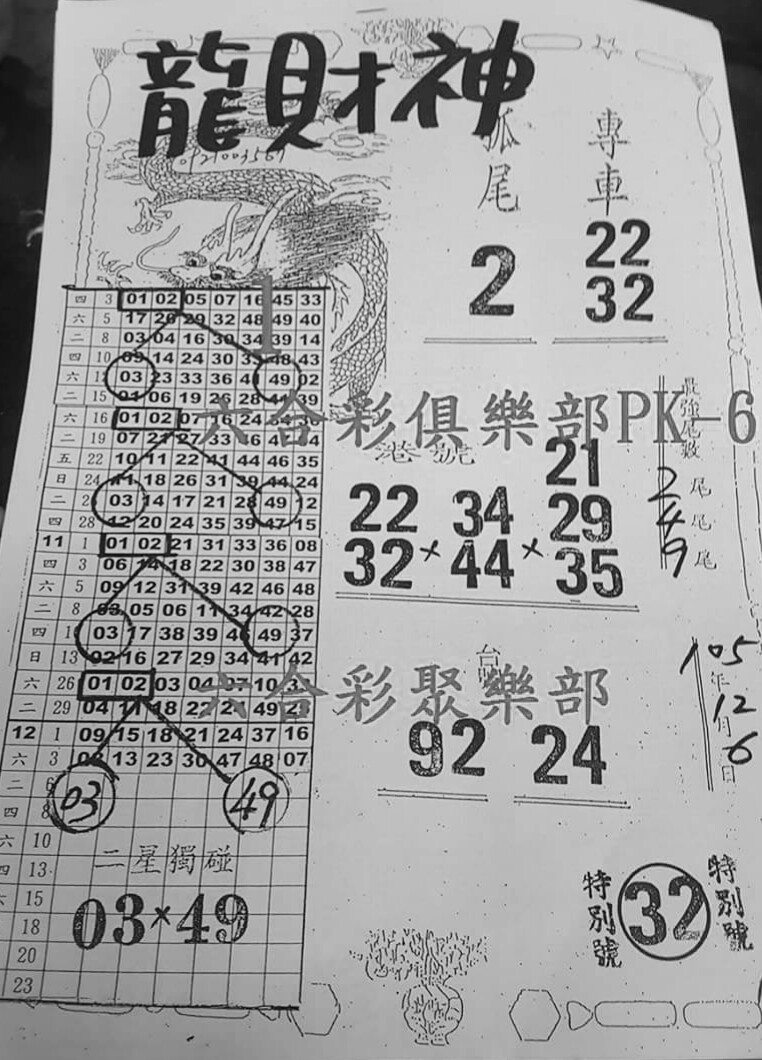 龍財神
0921003561
孤尾
2
專車
22
32
四 3 01 02 05 07 16 45 33
六 5 17 26 29 32 48 49 40
二 8 03 04 16 30 34 39 14
四 10 09 14 24 30 33 48 43
六 03 23 33 36 49 02
二 15 01 06 19 26 28 41 39
六 16 01 02 07 16 24 34
二 19 07 21 27 33
五 22 10 11 22 41 44 46 35
日 24 11 18 26 31 39 44 24
二 03 14 17 21 28 49 12
四 28 12 20 24 35 39 47 15
11 1 01 02 21 31 33 36 08
四 3 06 14 18 22 30 38 47
六 5 09 12 31 39 42 46 48
二 8 03 05 06 11 34 42 28
四 03 17 38 39 46 49 37
日 13 02 16 27 29 34 41 42
六 26 01 02 03 04 07 10
二 29 04 11 18 22 49
12 1 09 15 18 21 24 37 16
六 3 13 23 30 47 48 07
二 6
四 8
六 10
四 13
15
18
20
23
03 49
二星獨碰
03×49
六合彩俱樂部PK-6
港號
22 34 21
32 × 44 × 29
35
最強尾數
2 尾
4 尾
9 尾
六合彩聚樂部
台
92 24
105年
12月
6日
特別號
32
特別號